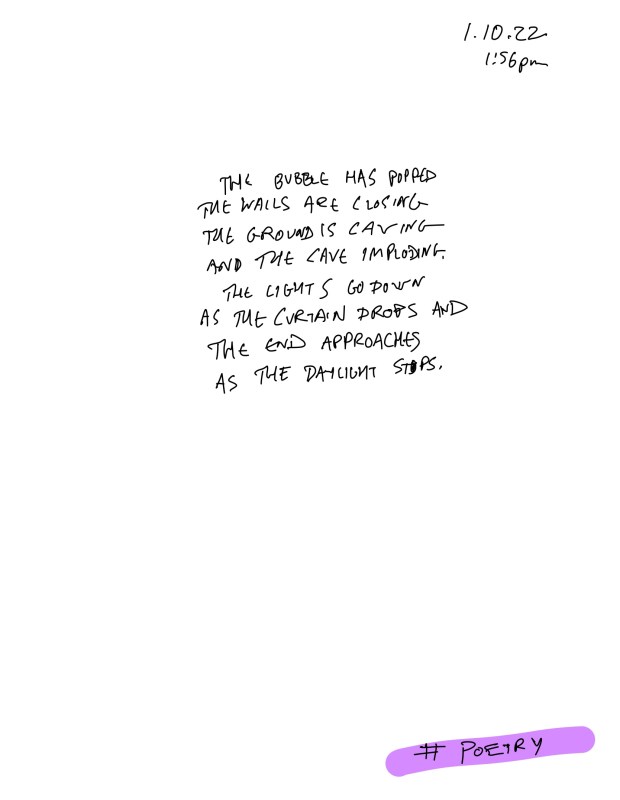 1.10.22
1:56pm
THE BUBBLE HAS POPPED
THE WALLS ARE CLOSING
THE GROUND IS CAVING
AND THE CAVE IMPLODING.
THE LIGHTS GO DOWN
AS THE CURTAIN DROPS AND
THE END APPROACHES
AS THE DAYLIGHT STOPS.
# POETRY